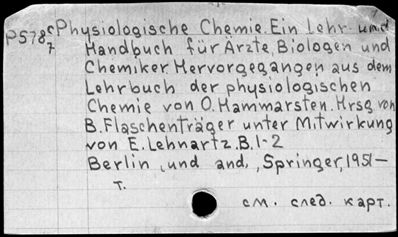 P578c/7 Physiologische Chemie. Ein Lehr- und
Handbuch für Ärzte, Biologen und
Chemiker. Hervorgegangen aus dem
Lehrbuch der physiologischen
Chemie von O. Hammarsten. Hrsg von
B. Flaschenträger unter Mitwirkung
von E. Lehnartz. B. 1-2
Berlin, und and., Springer, 1951-
т.
см. след. карт.